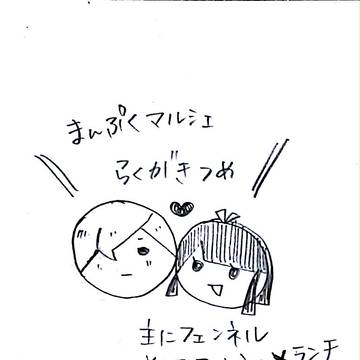 まんぷくマルシェ
らくがきつめ
主にフェンネル
×ランチ